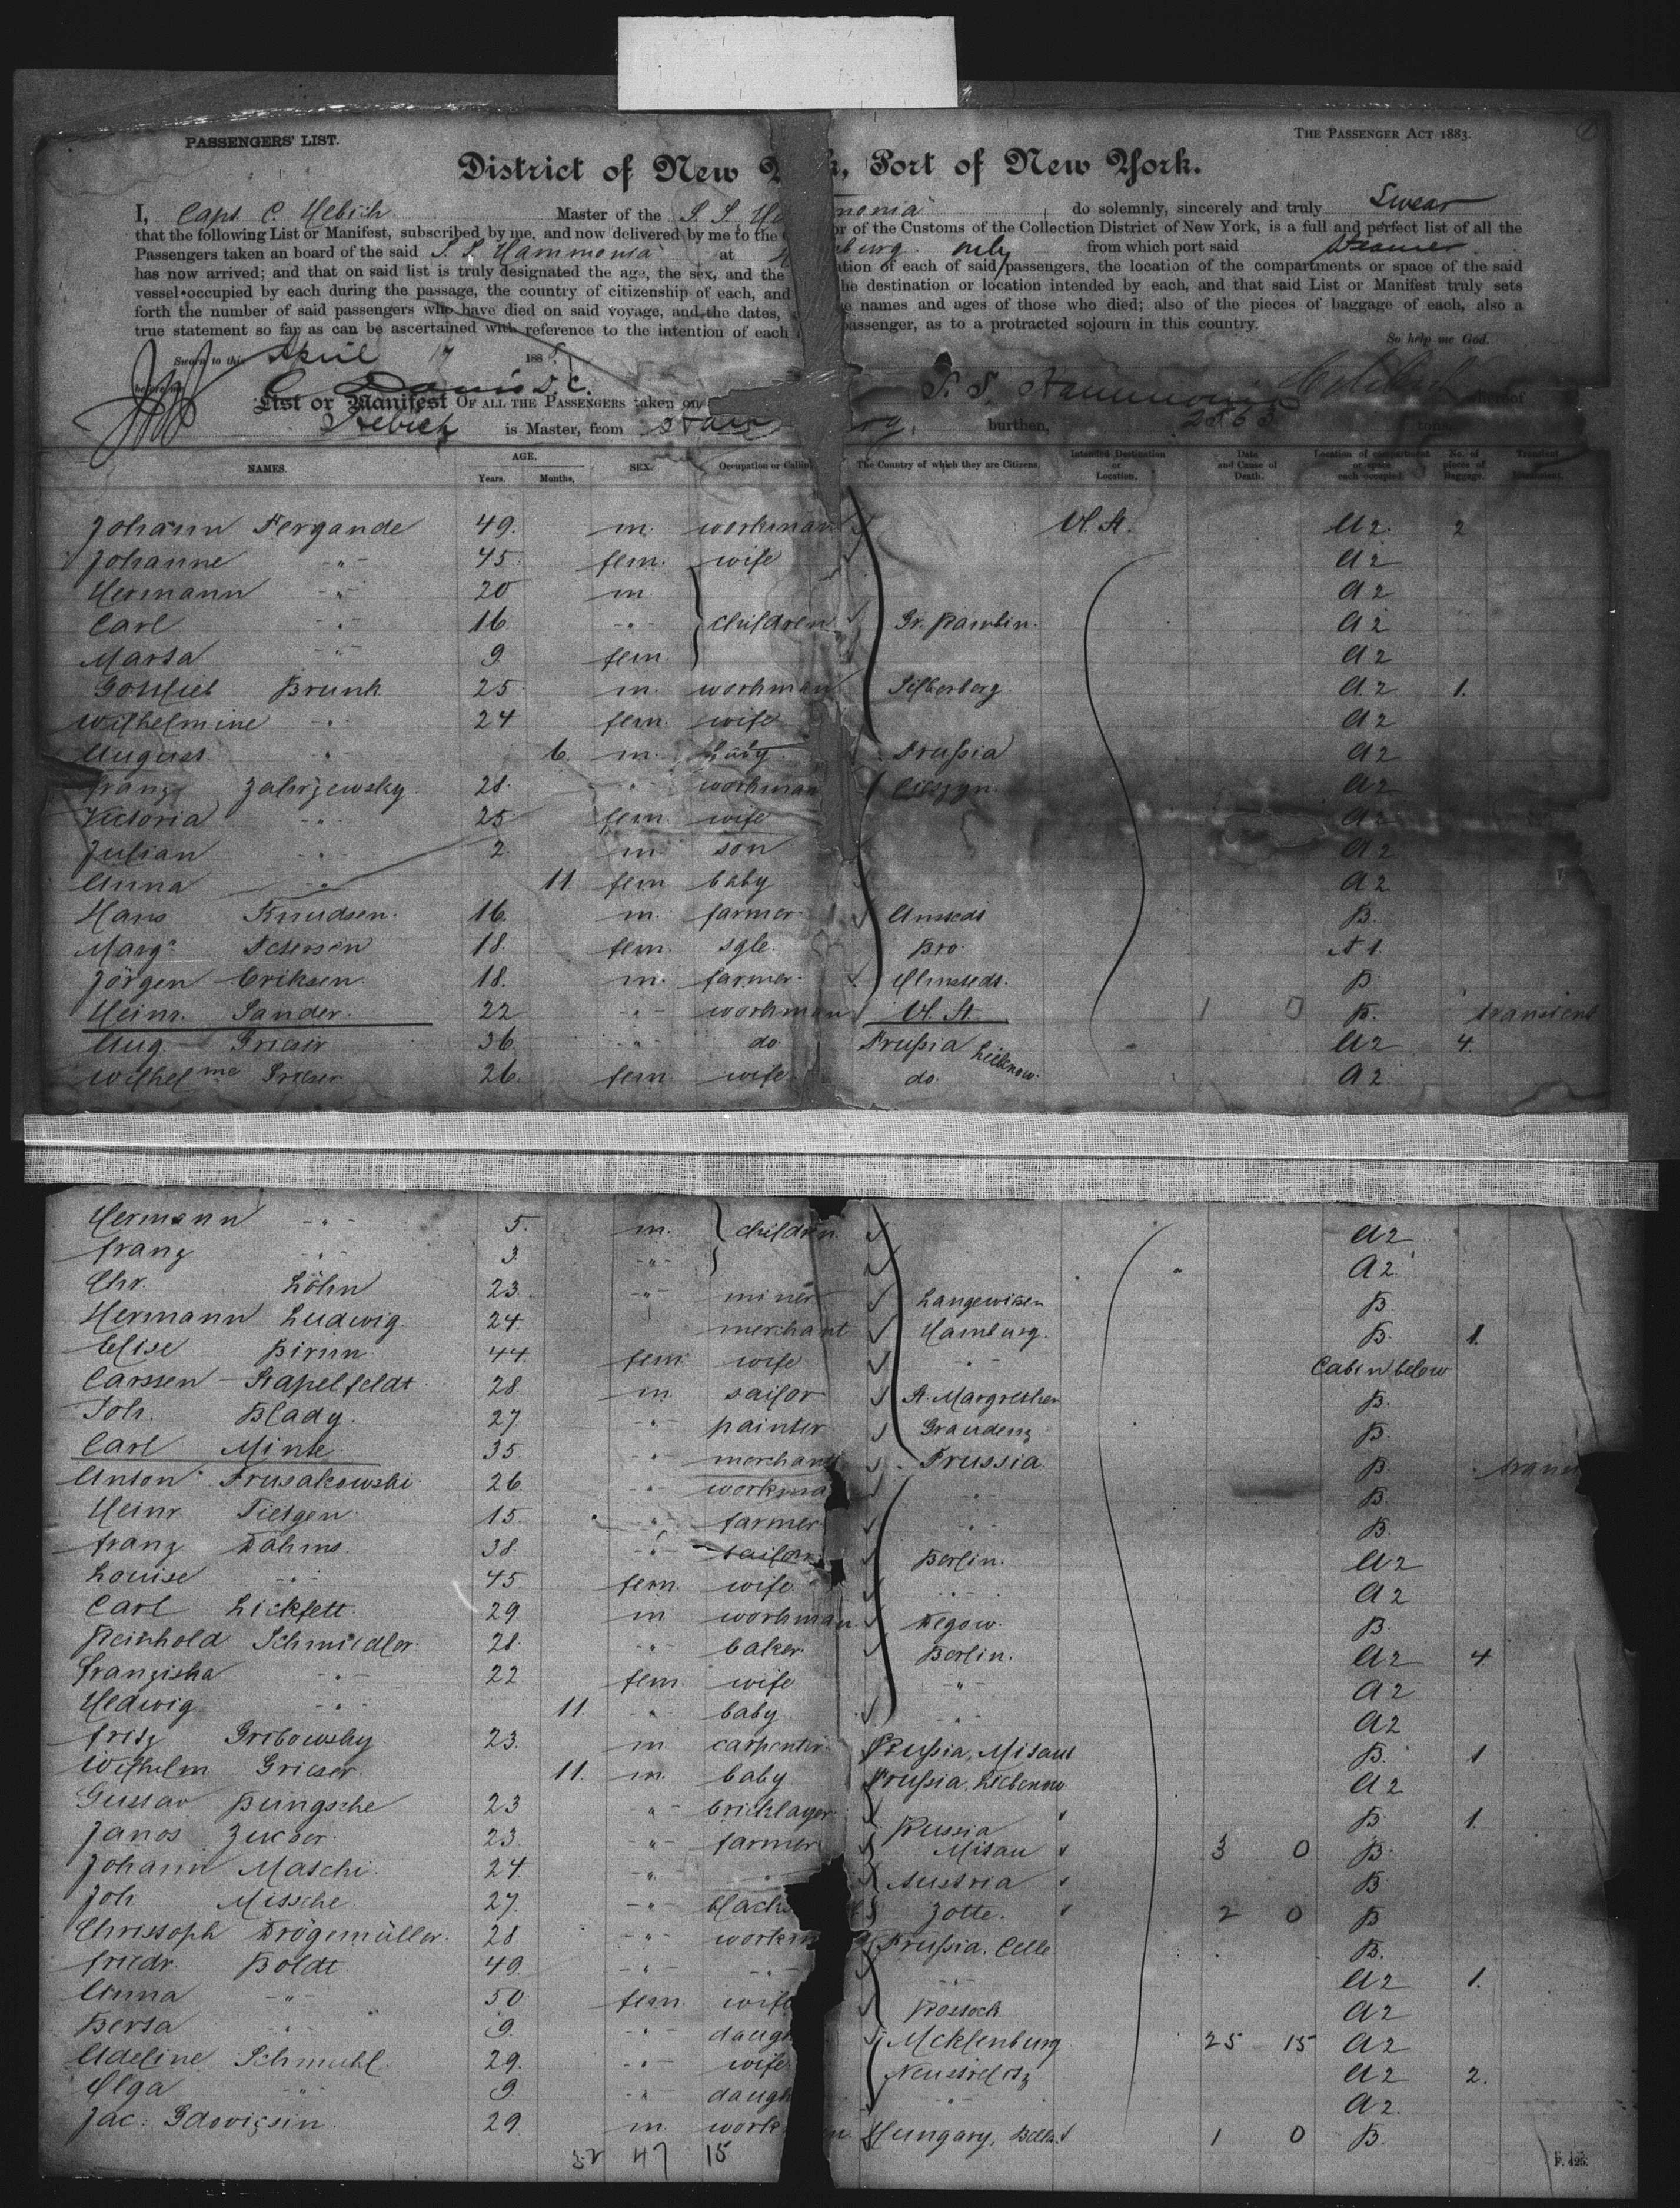 PASSENGERS' LIST.
THE PASSENGER ACT 1883.
District of New Y k, Port of New York.
I, Capt C. Hebich Master of the S. S. Ha monia do solemnly, sincerely and truly Swear
that the following List or Manifest, subscribed by me, and now delivered by me to the or of the Customs of the Collection District of New York, is a full and perfect list of all the
Passengers taken on board of the said S. S. Hammonia at H burg only from which port said Steamer
has now arrived; and that on said list is truly designated the age, the sex, and the ation of each of said passengers, the location of the compartments or space of the said
vessel occupied by each during the passage, the country of citizenship of each, and he destination or location intended by each, and that said List or Manifest truly sets
forth the number of said passengers who have died on said voyage, and the dates, e names and ages of those who died; also of the pieces of baggage of each, also a
true statement so far as can be ascertained with reference to the intention of each passenger, as to a protracted sojourn in this country.
So help me God.
Sworn to this April 17 188
before me
C. Davis D.C.
List or Manifest OF ALL THE PASSENGERS taken on S. S. Hammonia whereof
Hebich is Master, from Ham rg, burthen, tons.
NAMES. AGE. Years. Months. SEX. Occupation or Calling The Country of which they are Citizens. Intended Destination or Location. Date and Cause of Death. Location of compartment or space each occupied. No. of pieces of Baggage. Transient
Johann Pergande 49. m. workman U. St. A 2. 2
Johanne -"- 45 fem. wife A 2
Hermann -"- 20 m A 2
Carl -"- 16 -"- children Gr. Rambin. A 2
Marta -"- 9. fem. A 2
Gottlieb Brunk 25 m. workman Silberberg. A 2 1.
Wilhelmine -"- 24 fem. wife A 2
August -"- 6. m. baby Prussia A 2
Franz Zahrzewsky 28. -"- workman A 2
Victoria -"- 25 fem. wife A 2
Julian -"- 2. m son A 2
Anna -"- 11. fem baby A 2
Hans Knudsen. 16. m. farmer B.
Marg. Petersen 18. fem. sgle. Bro. A 1.
Jörgen Eriksen. 18. m. farmer. B.
Heinr. Sander. 22 -"- workman U. St. 1 0 B. transient
Aug. Grieser 36. -"- do Prussia Liebenow. A 2 4.
Wilhelme Grieser 26. fem wife do. A 2
Hermann -"- 5. m. children A 2
Franz -"- 3. -"- A 2
Chr. Löhn 23. -"- miner Langewisen B.
Hermann Ludwig. 24. merchant Hamburg. B. 1.
Elise Birnn 44. fem. wife -"- Cabin below
Carssen Stapelfeldt 28. m sailor St. Margrethen B.
Joh. Blady. 27. -"- painter Graudenz B.
Carl Minte 35. -"- merchant Prussia B. trans
Anton Prusakowski 26 -"- workma -"- B.
Heinr. Tietgen 15. -"- farmer -"- B.
Franz Dahms. 38. -"- Berlin. A 2
Louise -"- 45. fem. wife -"- A 2
Carl Lickfett 29. m workman Degow. B.
Reinhold Schmiedler. 28. -"- baker. Berlin. A 2 4
Franziska -"- 22 fem. wife -"- A 2
Hedwig -"- 11. -"- baby -"- A 2
Fritz Gribowsky 23. m. carpenter Prussia, B. 1
Wilhelm Grieser. 11. m. baby Prussia, Liebenow A 2
Gustav Bungsche 23 -"- bricklayer Russia B. 1.
Janos 23. -"- farmer Mitau 3 0 B.
Johann Maschi. 24. -"- Austria B.
Joh Missche. 27. -"- blacks Zotte. 2 0 B
Christoph Drögemüller. 28 -"- workm Prussia. Celle B.
Friedr. Boldt 49. -"- -"- -"- A 2 1.
Anna -"- 50 fem. wife Rostock A 2
Berta -"- 9. -"- daugh Mcklenburg 25 15 A 2
Adeline Schmuhl. 29. -"- wife Neustrelitz A 2 2.
Olga -"- 9. -"- daugh -"- A 2.
Jac. Gdovizsin 29. m. work n. Hungary, 1 0 B.
52 47 15
F. 425.